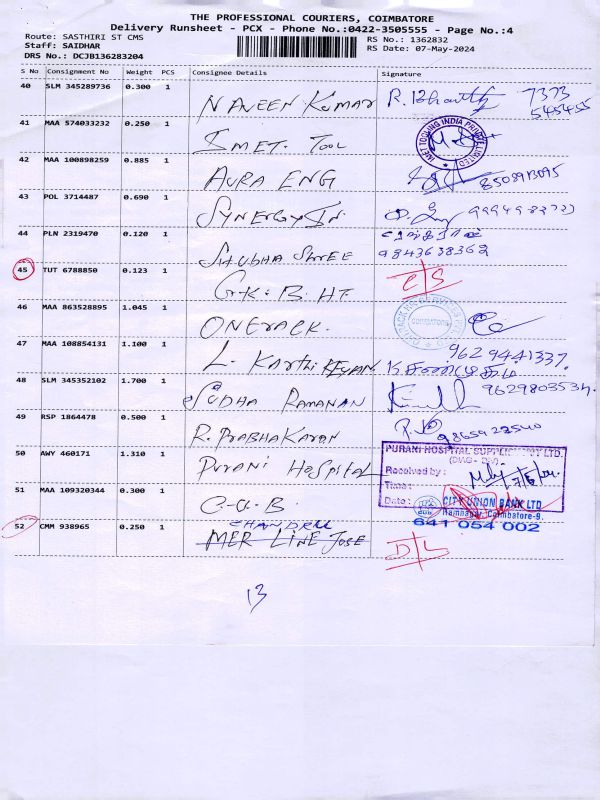 THE PROFESSIONAL COURIERS, COIMBATORE
Delivery Runsheet - PCX - Phone No.:0422-3505555 - Page No.:4
Route: SASTHIRI ST CMS RS No.: 1362832
Staff: SAIDHAR RS Date: 07-May-2024
DRS No.: DCJB136283204
S No Consignment No Weight PCS Consignee Details Signature
40 SLM 345289736 0.300 1 NAVEEN KUMAR R. Bharath 7373
545455
41 MAA 574033232 0.250 1 SMET. TOOL
42 MAA 100898259 0.885 1 AURA ENG
43 POL 3714487 0.690 1 SYNERGY IN.
44 PLN 2319470 0.120 1 SHUBHA SHREE 9843638362
45 TUT 6788850 0.123 1 G.K.B. HT. C/S
46 MAA 863528895 1.045 1 ONERACK.
47 MAA 108854131 1.100 1 L. KARTHIKEYAN 9629441337.
48 SLM 345352102 1.700 1 SUDHA RAMANAN 9629803534.
49 RSP 1864478 0.500 1 R. PRABHAKARAN
50 AWY 460171 1.310 1 PURANI HOSPITAL
PURANI HOSPITAL SUPPLIES PVT LTD.
Received by :
Time :
Date :
51 MAA 109320344 0.300 1 C.U.B.
CITY UNION BANK LTD
Ramnagar, Coimbatore-9.
641 054 002
52 CMM 938965 0.250 1 CHANDRU
MER LINE JOSE D/L
13